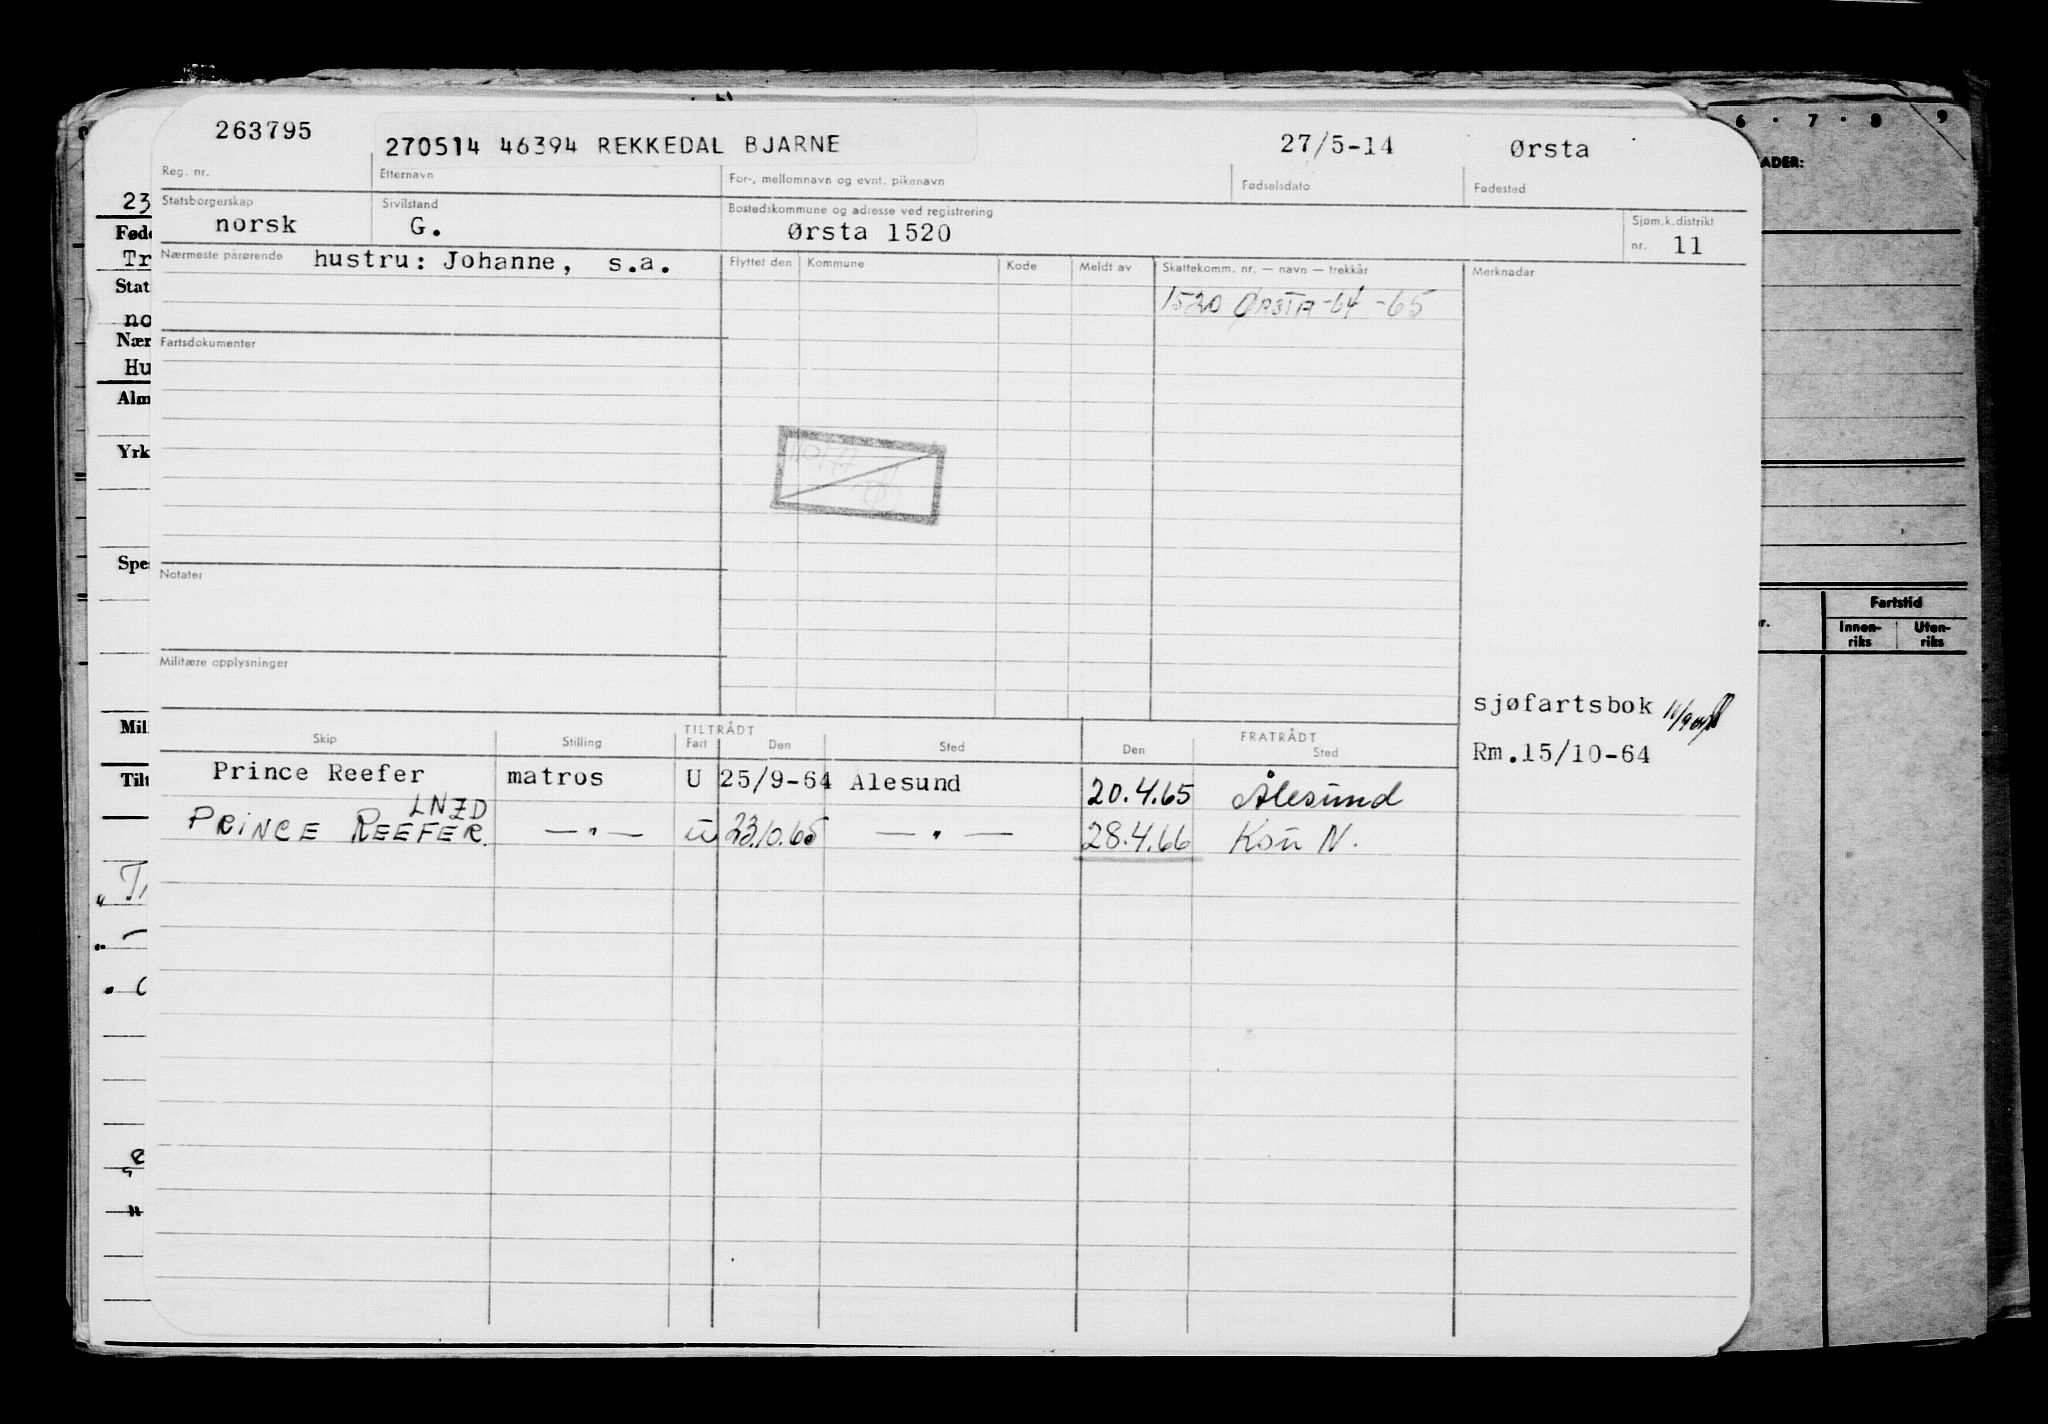 263795
270514 46394 REKKEDAL BJARNE
27/5-14
Ørsta
Reg. nr.
Etternavn
For-, mellomnavn og evnt. pikenavn
Fødselsdato
Fødested
Statsborgerskap
norsk
Sivilstand
G.
Bostedskommune og adresse ved registrering
Ørsta 1520
Sjøm.k.distrikt
nr. 11
Nærmeste pårørende hustru: Johanne, s.a.
Flyttet den
Kommune
Kode
Meldt av
Skattekomm. nr. — navn — trekkår
Merknader
1520 ØRSTA -64 -65
Fartsdokumenter
Notater
Militære opplysninger
sjøfartsbok
Rm. 15/10-64
TILTRÅDT
FRATRÅDT
Skip
Stilling
Fart
Den
Sted
Den
Sted
Prince Reefer matros U 25/9-64 Alesund 20.4.65 Ålesund
LNZD
PRINCE REEFER. —"— u 23.10.65 —"— 28.4.66 Køu N.
6 · 7 · 8 9
ADER:
Fartstid
Innen-
riks
Uten-
riks
23
Føde
Tr
Stat
no
Nær
Hu
Alm
Yrk
Spe
Mil
Tilt